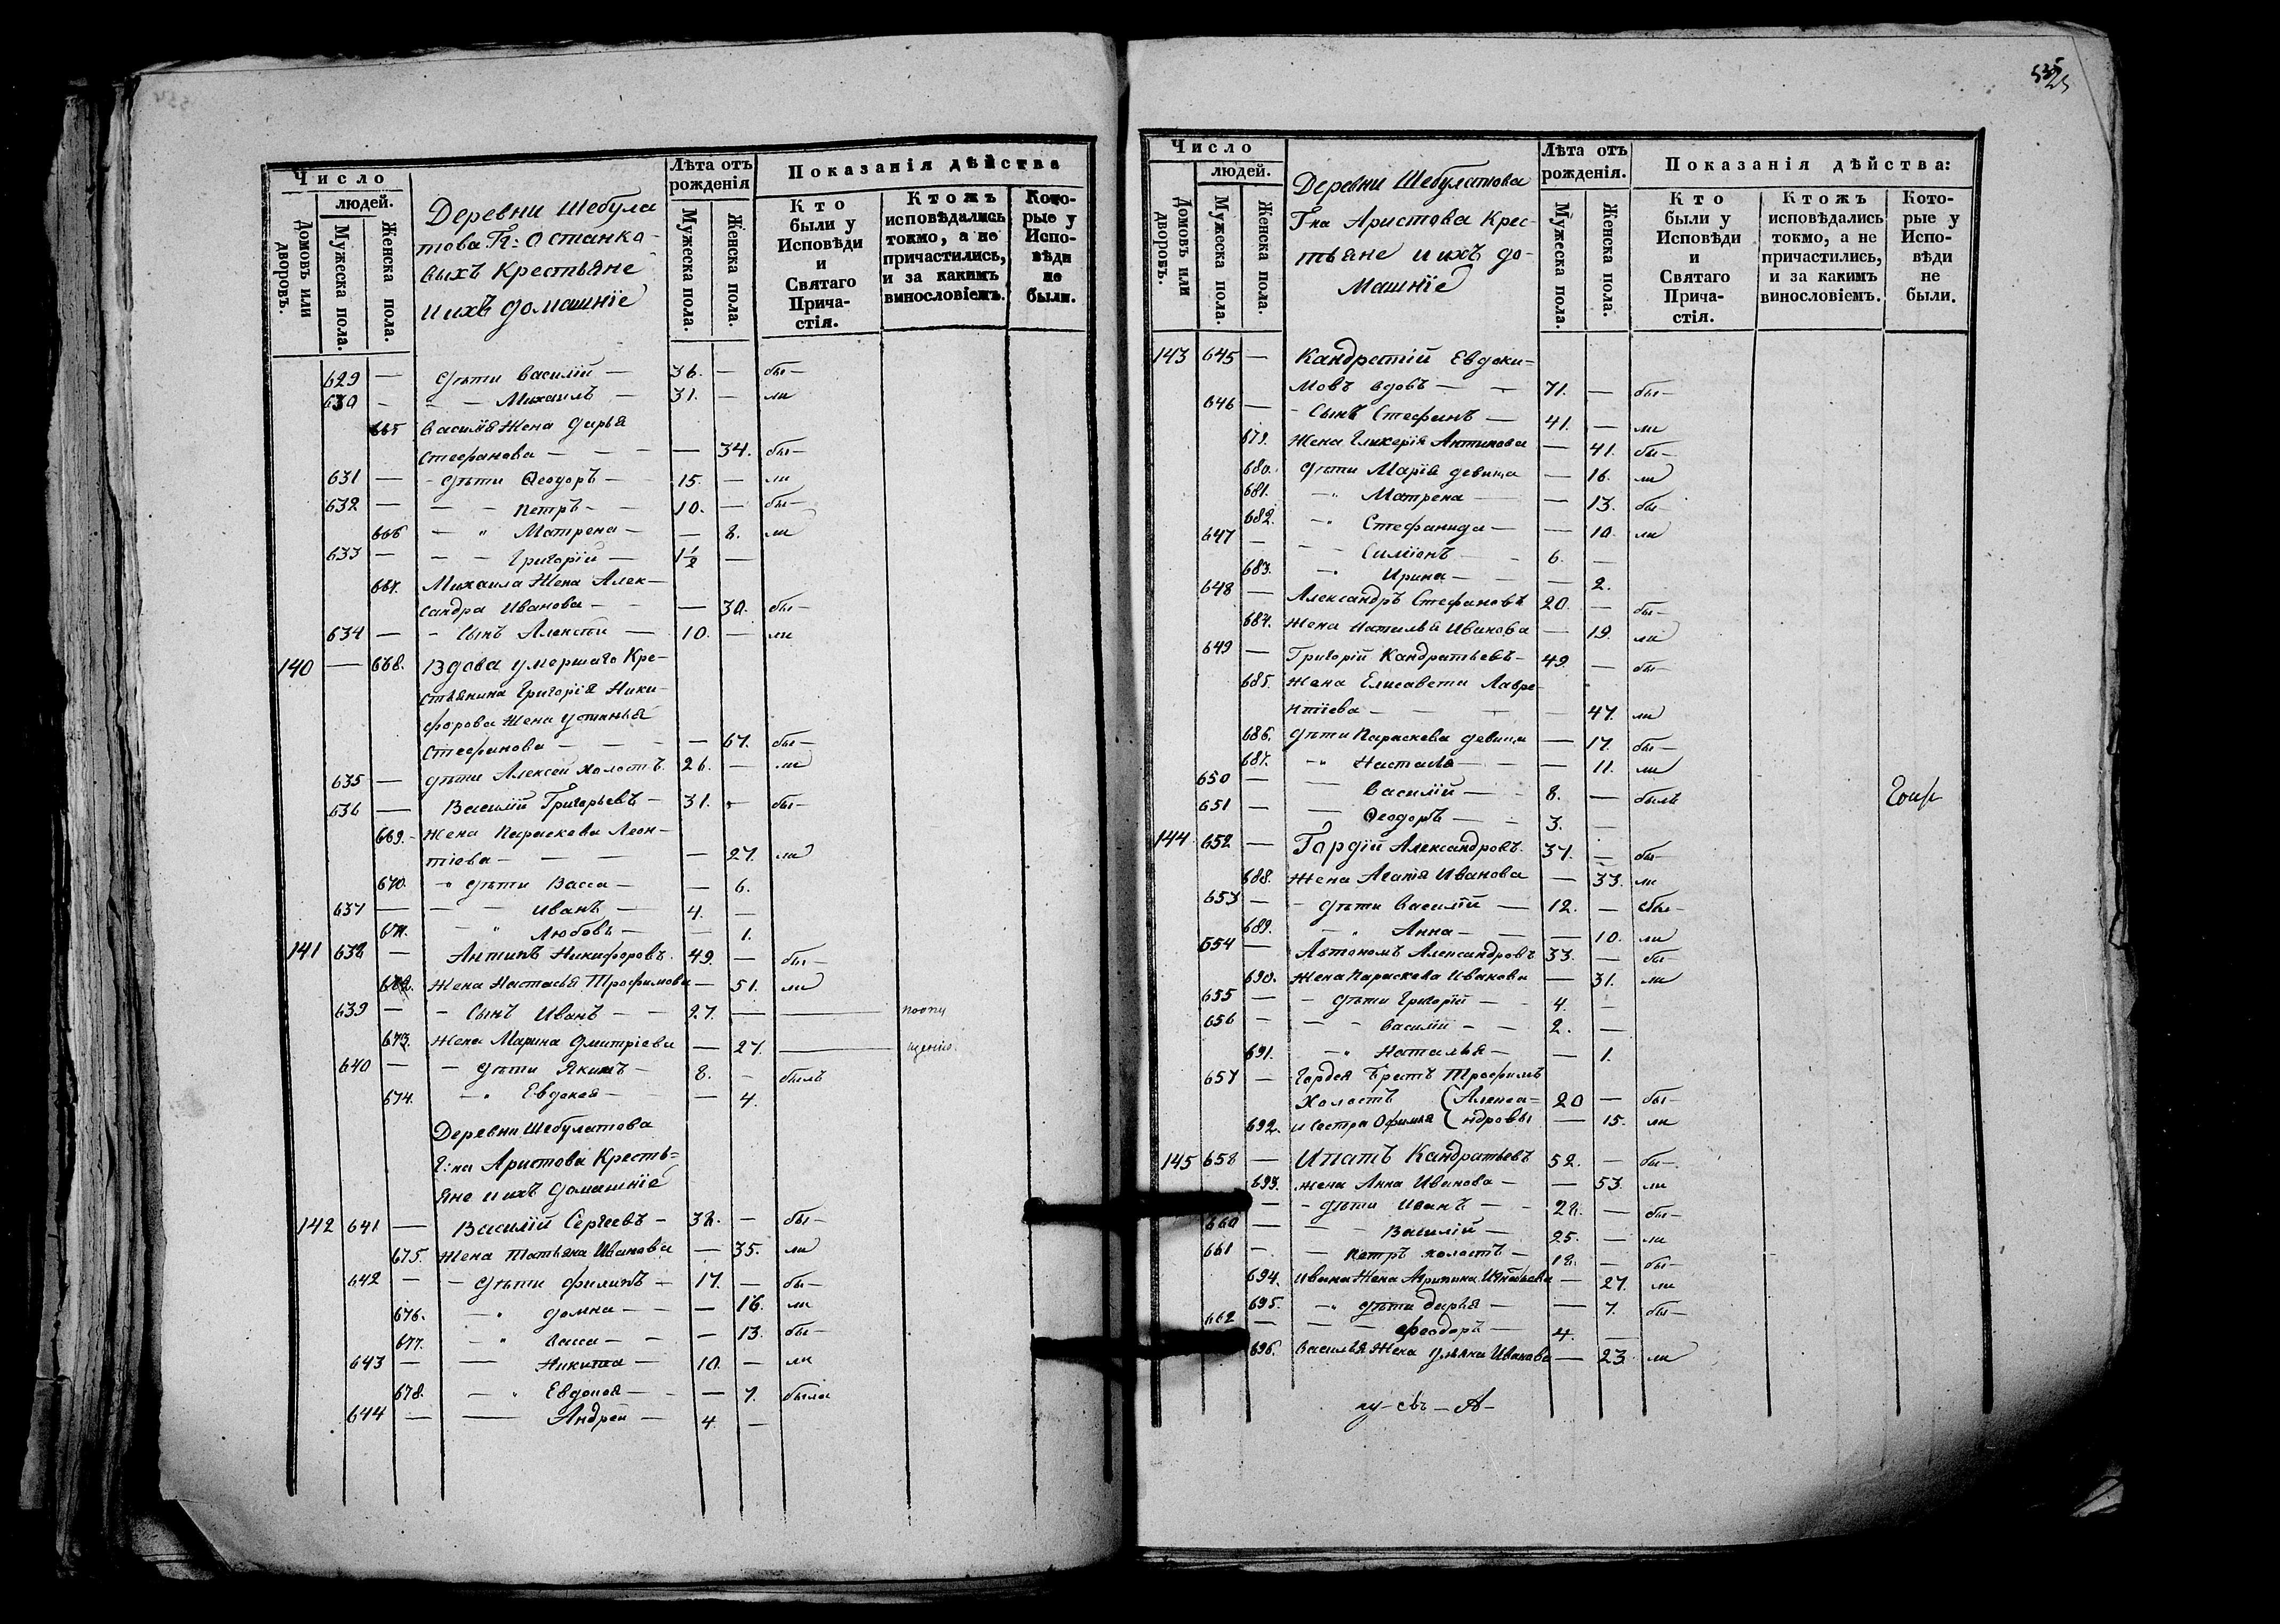 Число
людей.
Домовъ или дворовъ.
Мужеска пола.
Женска пола.
Деревни Шебула
това Гг: Останко-
выхъ Крестьяне
и ихъ домашніе
Лѣта отъ рожденія
Мужеска пола.
Женска пола.
Показанія дѣйства
Кто были у Исповѣди и Святаго Прича- стія.
Ктожъ исповѣдались токмо, а не причастились, и за какимъ винословіемъ.
Кото- рые у Испо- вѣди не были.
629 — дѣти Василій — 36. — бы-
630 - - - Михаилъ - 31. - ли
665 Василія Жена Дарья
Стефанова - - - — 34. бы-
631 — - дѣти Ѳеодоръ - 15. - ли
632 - - - Петръ - - 10. - бы-
666 - " Матрена - - 8. ли
633 - - - Григорій - 1½ -
667. Михаила Жена Алек-
сандра Иванова - - — 30. бы-
634 — - Сынъ Алексѣй — 10. — ли
140 — 668. Вдова умершаго Кре-
стьянина Григорія Ники-
форова Жена Устинья
Стефанова - - - — 67. бы-
635 — дѣти Алексей холостъ. 26. - ли
636 — Василій Григорьевъ - 31. - бы-
669. - Жена Параскева Леон-
тіева - - - — 27. ли
670. - дѣти Васса - — 6.
637 - - - Иванъ - 4. -
671. - " Любовь - - 1.
141 638 - Антипъ Никифоровъ. 49. - бы-
672. Жена Настасья Трофимова - 51. ли
639 - - Сынъ Иванъ - - 27. — —— поопу
673. Жена Марина Дмитріева — 27. —— щенію.
640 - - дѣти Якимъ - 8. - былъ
674. - " Евдокея - - 4.
Деревни Шебулатова
Г:на Аристова Кресть=
яне и ихъ Домашніе
142 641 — Василій Сергеевъ - 38. - бы-
675. Жена Татьяна Иванова — 35. ли
642 - - дѣти Филипъ - 17. — бы-
676. - " домна - - - 16. ли
677. - " Васса - - - 13. бы-
643 - — Никита - 10. - ли
678. - " Евдокея - - — 7. была
644 - — Андрей - 4 -
535
Число
людей.
Домовъ или дворовъ.
Мужеска пола.
Женска пола.
Деревни Шебулатова
Г-на Аристова Крес-
тьяне и ихъ до-
машніе
Лѣта отъ рожденія.
Мужеска пола.
Женска пола.
Показанія дѣйства:
Кто были у Исповѣди и Святаго Прича- стія.
Ктожъ исповѣдались токмо, а не причастились, и за какимъ винословіемъ.
Кото- рые у Испо- вѣди не были.
143 645 — Кандратій Евдоки=
мовъ вдовъ - - 71. — бы-
646 — - Сынъ Стефанъ - 41. - ли
679. Жена Гликерія Антипова — 41. бы-
680. дѣти Марія девица — 16. ли
681. - " Матрена - — 13. бы-
682. - " Стефанида - — 10. ли
647 - - - Симіонъ - - 6. -
683. - " Ирина - - — 2.
648 — Александръ Стефановъ 20. - бы-
684. Жена Наталья Иванова — 19. ли
649 — Григорій Кандратьевъ - 49. - бы-
685. Жена Елисавета Лавре-
нтіева - - - - 47. ли
686. дѣти Параскева девица — 17. бы-
687. - " Настасья - - — 11. ли
650 - - Василій - - 8. - былъ
651 - - Ѳеодоръ - - 3. -
144 652 — Гордій Александровъ. 37. - бы-
688. Жена Агапія Иванова — 33. ли
653 - - дѣти Василій — 12. - бы-
689. - " Анна - - — 10. ли
654 — Автономъ Александровъ 33. - бы-
690. Жена Параскева Иванова — 31. ли
655 - - дѣти Григорій - - 4. -
656 - - - Василій - - 2. —
691. - " Наталья - — 1.
657 - Гордея братъ Трофимъ
Холостъ (Алекса= 20 — бы-
692. и сестра Офимья ндровы — 15. ли
145 658 — Ипатъ Кандратьевъ 52. - бы-
693. Жена Анна Иванова - — 53. ли
- - дѣти Иванъ - - 28. — бы-
660 - - - Василій - 25. - ли
661 - - Петръ холостъ - 18. - бы-
694. Ивана Жена Агрипина Игнатьева — 27. ли
695. - " дѣти Дарья - — 7. бы-
662 - - - Феодоръ - 4. —
696. Василья Жена Ульяна Иванова — 23. ли